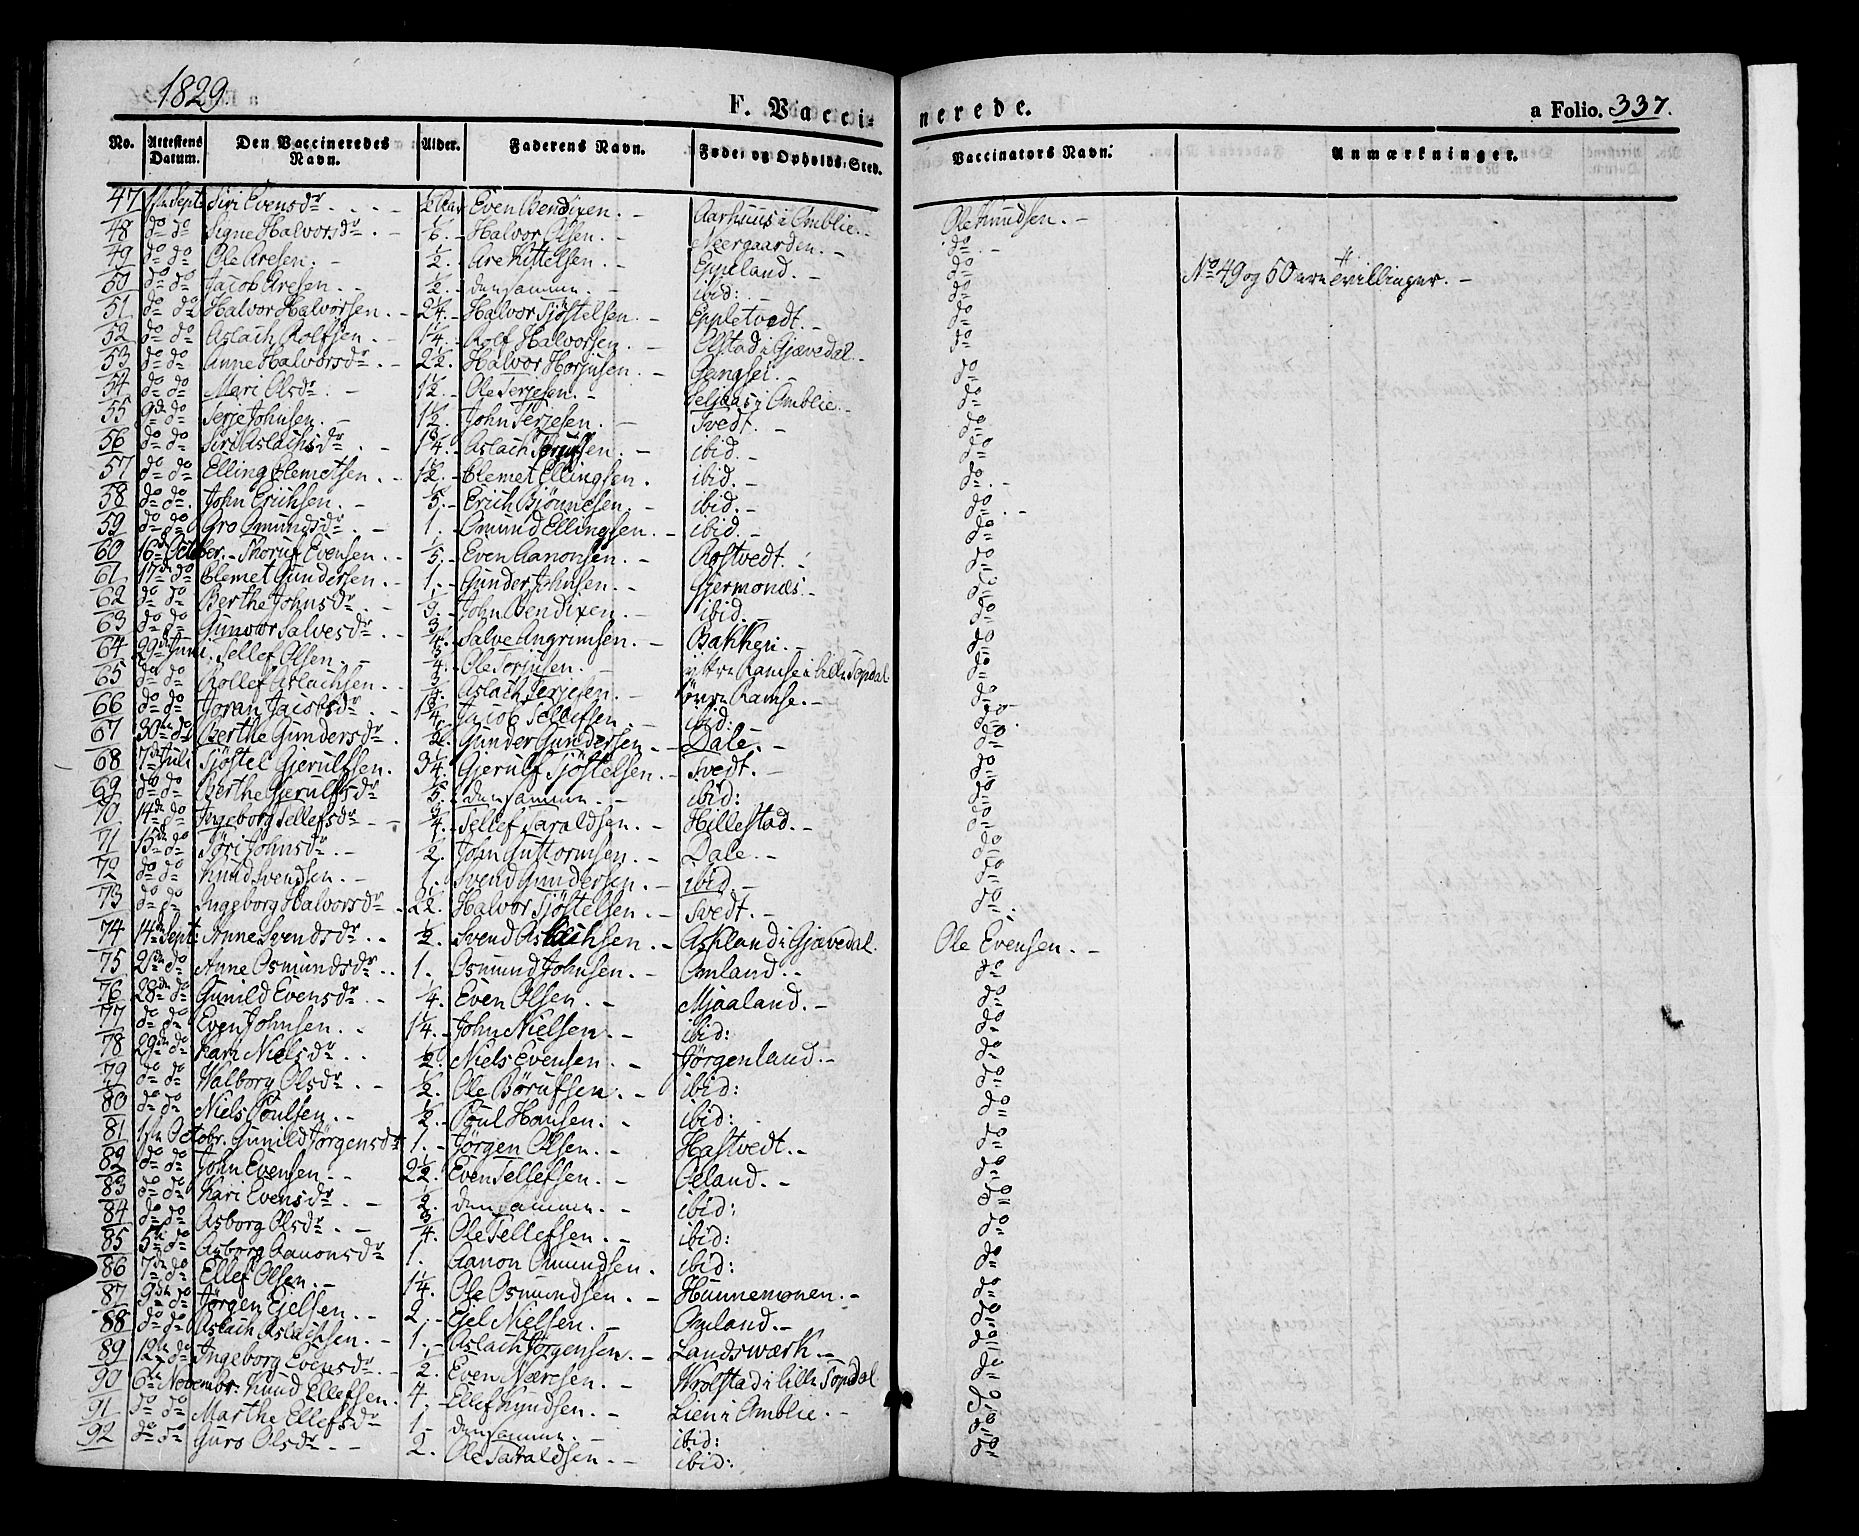 1829.
F. Vaccinerede.
a Folio. 337.
No. Attestens Datum. Den Vaccineredes Navn. Alder. Faderens Navn. Fødes og Opholds-Sted. Vaccinators Navn. Anmærkninger.
47 Sept: Siri Evensdr. Even Bendixen. Aarhuus i Omblie. Ole Knudsen.
48 do do Signe Halvorsdr. Halvor Olsen. Neergaarden. do
49 do do Ole Aresen. 1/2. Are Kittelsen. Eppeland. do
50 do do Jacob Aresen. 1/2. densamme. ibid: do No 49 og 50 ere Tvillinger.
51 do do Halvor Halvorsen. Halvor Sjöstelsen. Eppletvedt. do
52 do do Aslach Rolfsen. 1 1/4. Rolf Halvorsen. Olstad i Gjævedal. do
53 do do Anne Halvorsdr. 2 1/2. Halvor Horjusen. Gangsei. do
54 do do Mari Olsdr. 1 1/2. Ole Terjesen. Seljaas i Omblie. do
55 9de do Terje Johnsen. 1 1/2. John Terjesen. Tvedt. do
56 do do Siri Aslachsdr. 1 3/4. Aslach ibid. do
57 do do Elling Clemetsen. 1 1/2. Clemet Ellingsen. ibid. do
58 do do John Erichsen. Erich Bjönnesen. ibid. do
59 do do Gro Omundsdr. 1. Omund Ellingsen. ibid. do
60 16de October. Thoruf Evensen. Even Aanonsen. Rostvedt. do
61 17de do Clemet Gundersen. 1. Gunder Johnsen. Gjermonæs. do
62 do do Berthe Johnsdr. John Bendixen. ibid. do
63 do do Gunvor Salvesdr. Salve Angrimsen. Bakken. do
64 29de Juni. Tellef Olsen. 3/4. Ole Terjusen. yttre Ramse i lille Topdal. do
65 do do Rollef Aslachsen. 3/4. Aslach Terjesen. övre Ramse. do
66 do do Joran Jacobsdr. 1 3/4. Jacob Tellefsen. ibid: do
67 30te do Berthe Gundersdr. Gunder Gundersen. Dale. do
68 7de Juli Sjöstel Gjerulfsen. 3 1/4. Gjerulf Sjöstelsen. Tvedt. do
69 do do Berthe Gjerulfsdr. densamme. ibid: do
70 14de do Ingeborg Tellefsdr. 3/4. Tellef Taraldsen. Hillestad. do
71 15de do Siri Johnsdr. John Guttormsen. Dale. do
72 do do Knud Svendsen. 1. Svend Gundersen. ibid. do
73 do do Ingeborg Halvorsdr. 2 1/2. Halvor Sjöstelsen. Tvedt. do
74 14de Sept: Anne Svendsdr. 1/2. Svend Aslachsen. Askland i Gjævedal. Ole Evensen.
75 do Anne Osmundsdr. 1. Osmund Johnsen. Omland. do
76 28de do Gunild Evensdr. 1/4. Even Olsen. Mjaaland. do
77 do do Even Johnsen. 1 1/4. John Nielsen. ibid: do
78 29de do Kari Nielsdr. 1/2. Niels Evensen. Jörgenland. do
79 do do Valborg Olsdr. 1/2. Ole Börufsen. ibid: do
80 do do Niels Poulsen. 1/2. Poul Hansen. ibid: do
81 Octobr. Gunild Jörgensdr. 1. Jörgen Olsen. Hastvedt. do
82 do do John Evensen. 2 1/2. Even Tellefsen. Oeland. do
83 do do Kari Evensdr. 1/2. densamme. ibid: do
84 do do Asborg Olsdr. 3/4. Ole Tellefsen. ibid: do
85 5te do Asborg Aanonsdr. 1. Aanon Omundsen. ibid: do
86 7de do Ellef Olsen. 1 1/4. Ole Osmundsen. Hunnemonen. do
87 9de do Jörgen Ejelsen. 2. Ejel Nielsen. Omland. do
88 do do Aslach Aslachsen. 1. Aslach Jörgensen. Landsværk. do
89 12te do Ingeborg Evensdr. 1/2. Even Næresen. Wrolstad i lille Topdal do
90 6te Novembr: Knud Ellefsen. 4. Ellef Knudsen. Lien i Omblie. do
91 do do Marthe Ellefsdr 1. densamme. ibid: do
92 do do Guro Olsdr. 2. Ole Taraldsen. ibid: do